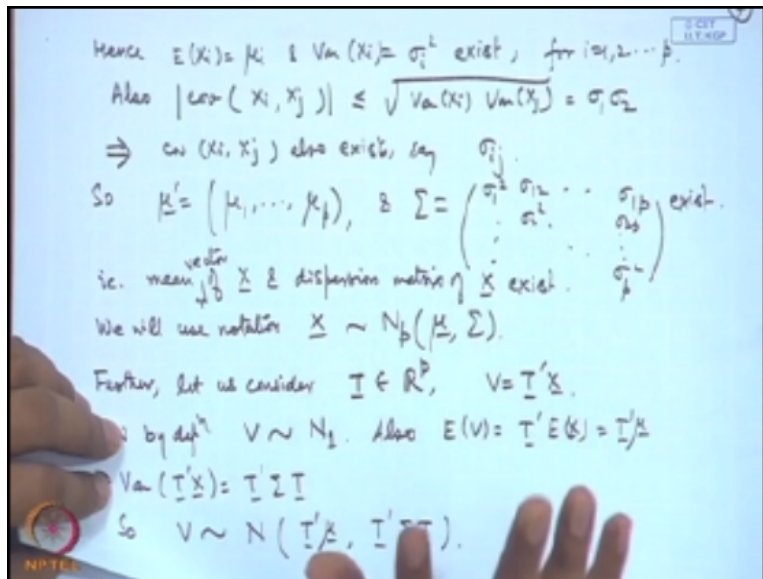 Hence E(Xi) = μi & Var(Xi) = σi² exist, for i=1,2...p.
Also |cov(Xi, Xj)| ≤ √Var(Xi) Var(Xj) = σ1σ2
⇒ cov(Xi, Xj) also exist, say σij.
So μ' = (μ1, ..., μp), & Σ = (σ1² σ12 .. σ1p
. σ2². σ2p
: . :
. σp²) exist.
ie. mean vector of X & dispersion matrix of X exist.
We will use notation X ~ Np(μ, Σ).
Further, let us consider T ∈ ℝᵖ, V = T'X.
by defn V ~ N1. Also E(V) = T'E(X) = T'μ
Var(T'X) = T'ΣT
So V ~ N(T'μ, T'ΣT).
NPTEL